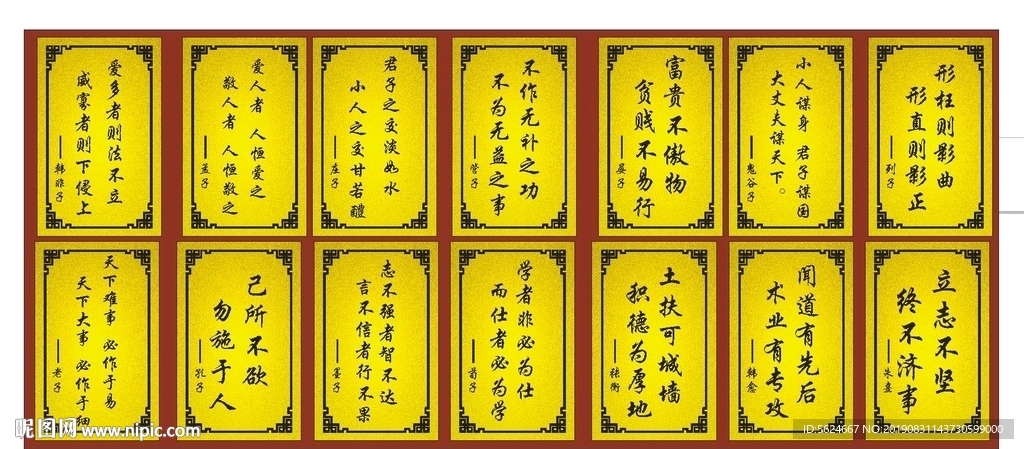 爱多者则法不立
威寡者则下侵上
——韩非子
爱人者 人恒爱之
敬人者 人恒敬之
——孟子
君子之交淡如水
小人之交甘若醴
——庄子
不作无补之功
不为无益之事
——管子
富贵不傲物
贫贱不易行
——晏子
小人谋身 君子谋国
大丈夫谋天下。
——鬼谷子
形枉则影曲
形直则影正
——列子
天下难事 必作于易
天下大事 必作于细
——老子
己所不欲
勿施于人
——孔子
志不强者智不达
言不信者行不果
——墨子
学者非必为仕
而仕者必为学
——荀子
土扶可城墙
积德为厚地
——张衡
闻道有先后
术业有专攻
——韩愈
立志不坚
终不济事
——朱熹
昵图网 www.nipic.com
ID:5624667 NO:20190831143730599000